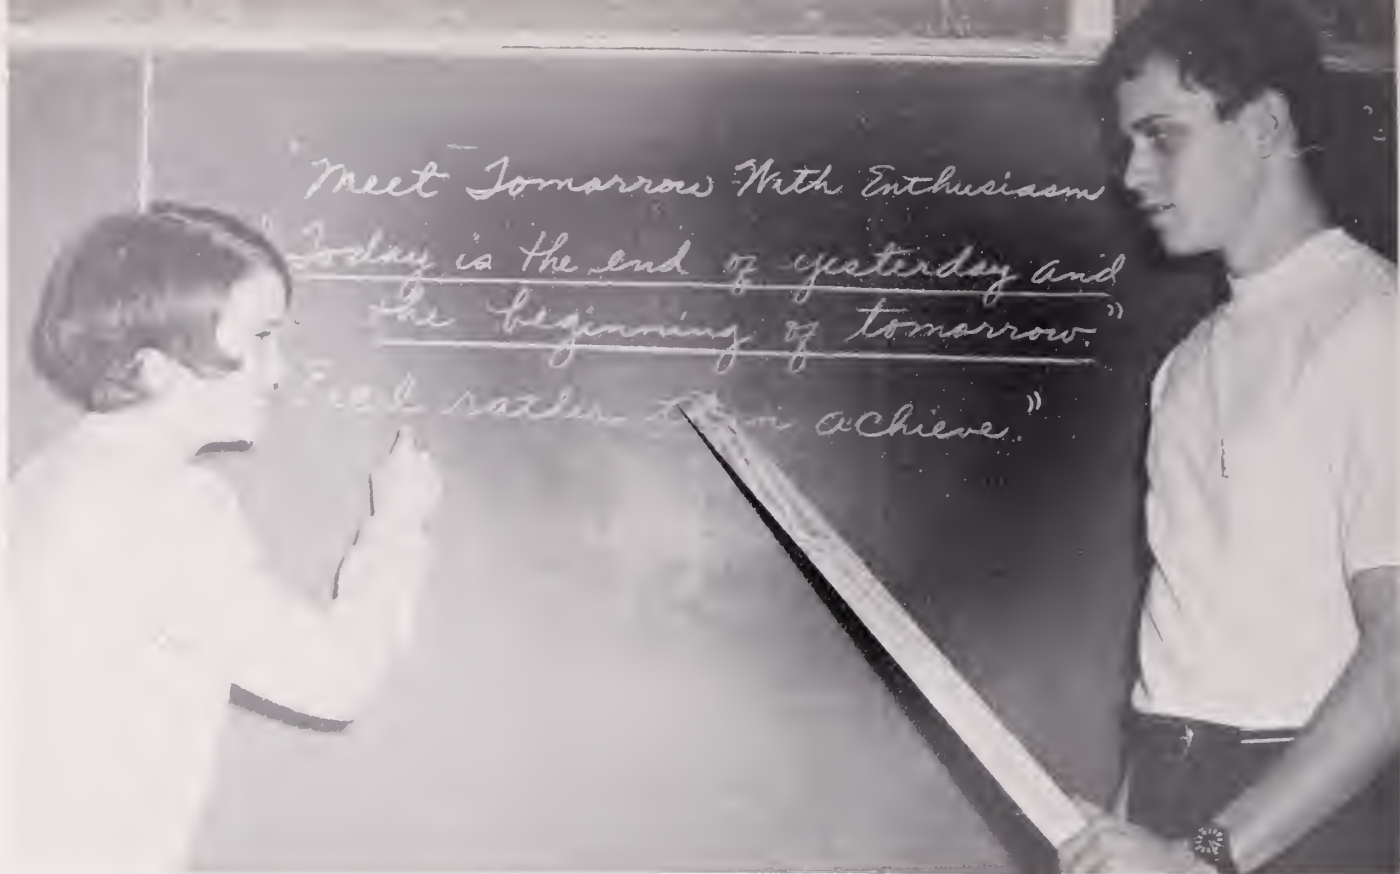 "Meet Tomorrow With Enthusiasm
"Today is the end of yesterday and
the beginning of tomorrow."
rather achieve."